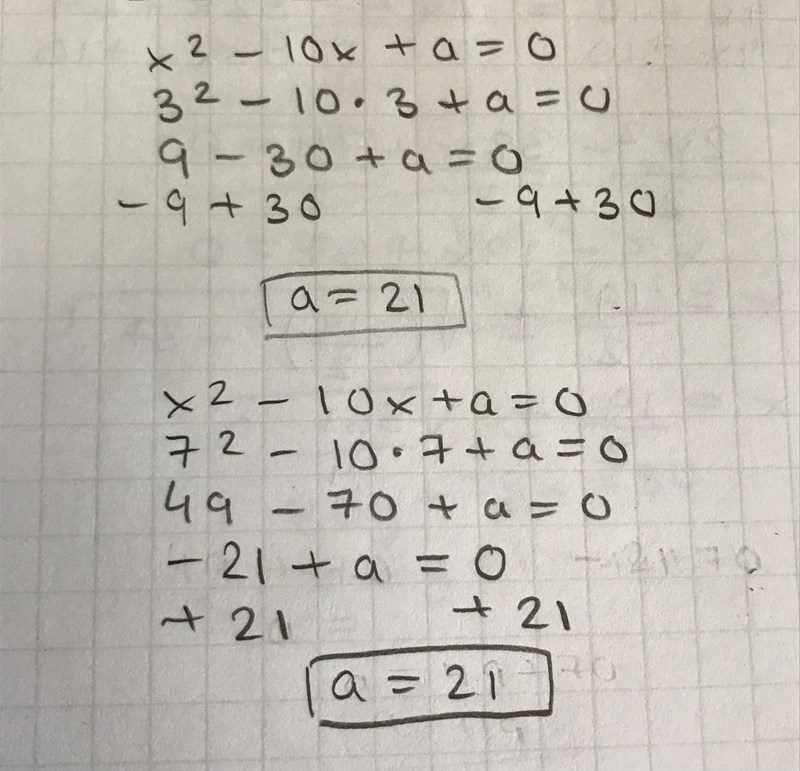 x² - 10x + a = 0
3² - 10·3 + a = 0
9 - 30 + a = 0
-9 + 30 -9 + 30
a = 21
x² - 10x + a = 0
7² - 10·7 + a = 0
49 - 70 + a = 0
-21 + a = 0
+21 +21
a = 21